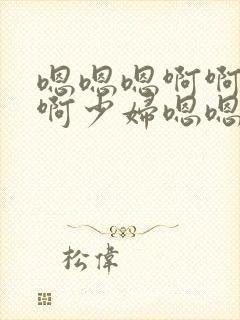 嗯嗯嗯啊啊
啊少婦嗯嗯
松偉